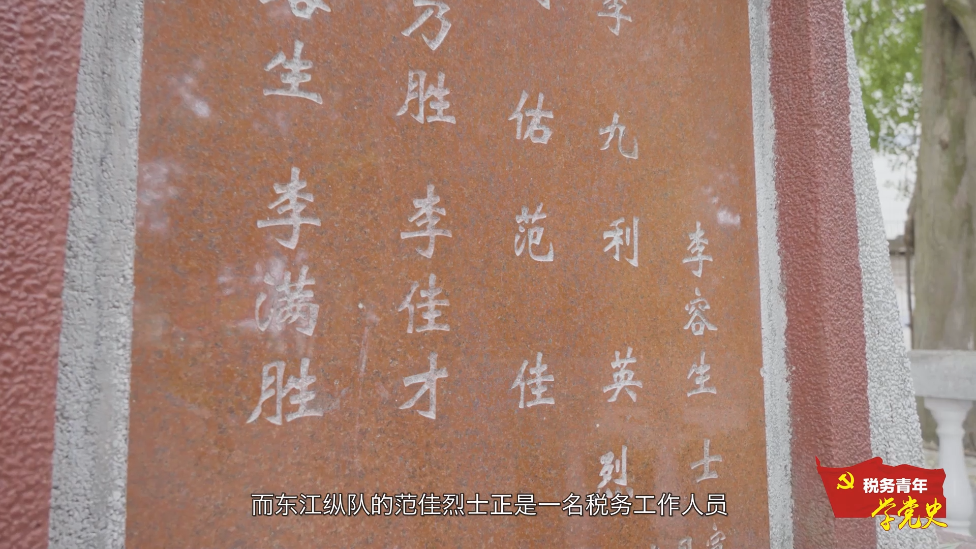 李容生士
李九利英烈
佑范佳
乃胜李佳才
容生李满胜
而东江纵队的范佳烈士正是一名税务工作人员
税务青年
学党史